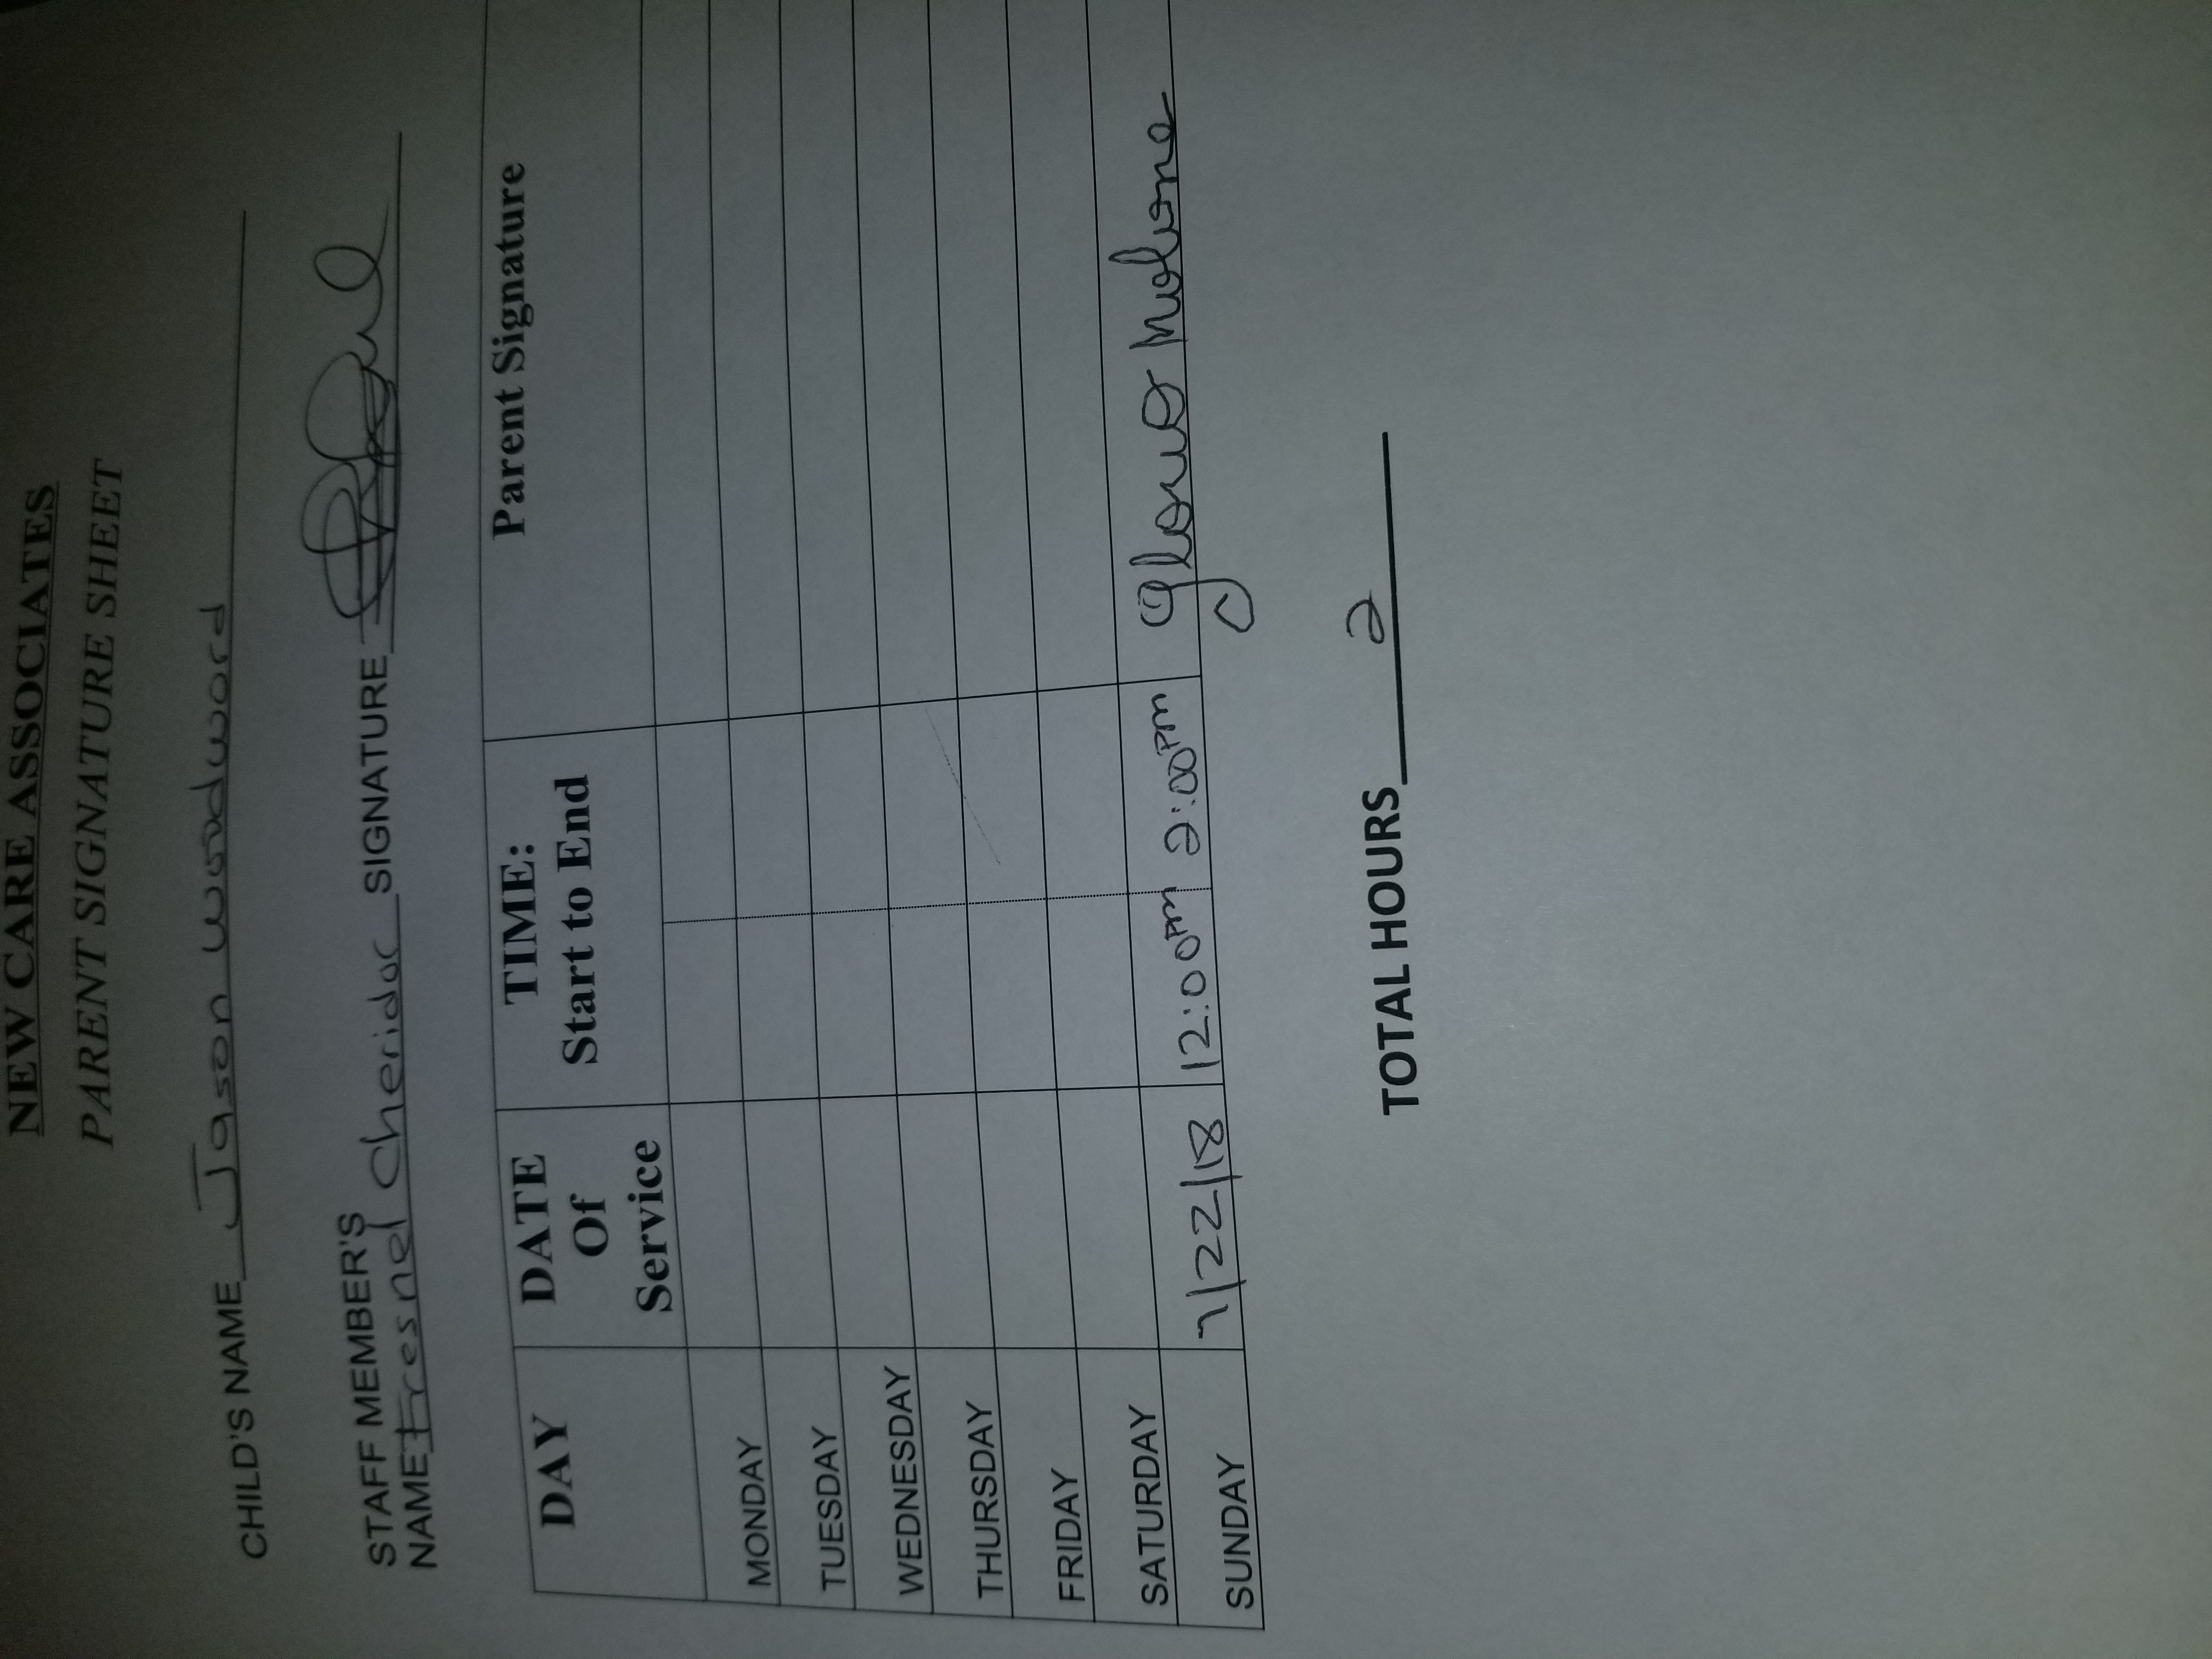 NEW CARE ASSOCIATES
PARENT SIGNATURE SHEET
CHILD'S NAME Jason Woodword
STAFF MEMBER'S
NAME Fresnel Cheridor SIGNATURE
DAY DATE Of Service TIME: Start to End Parent Signature
MONDAY
TUESDAY
WEDNESDAY
THURSDAY
FRIDAY
SATURDAY
SUNDAY 7/22/18 12:00PM 2:00PM
TOTAL HOURS 2